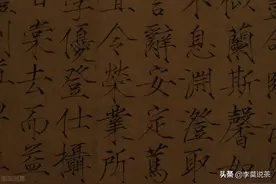 蘭斯馨如
不息淵澄取
言辭安定篤
宜令榮業所
學優登仕攝
棠去而益
头条 @李莫说茶